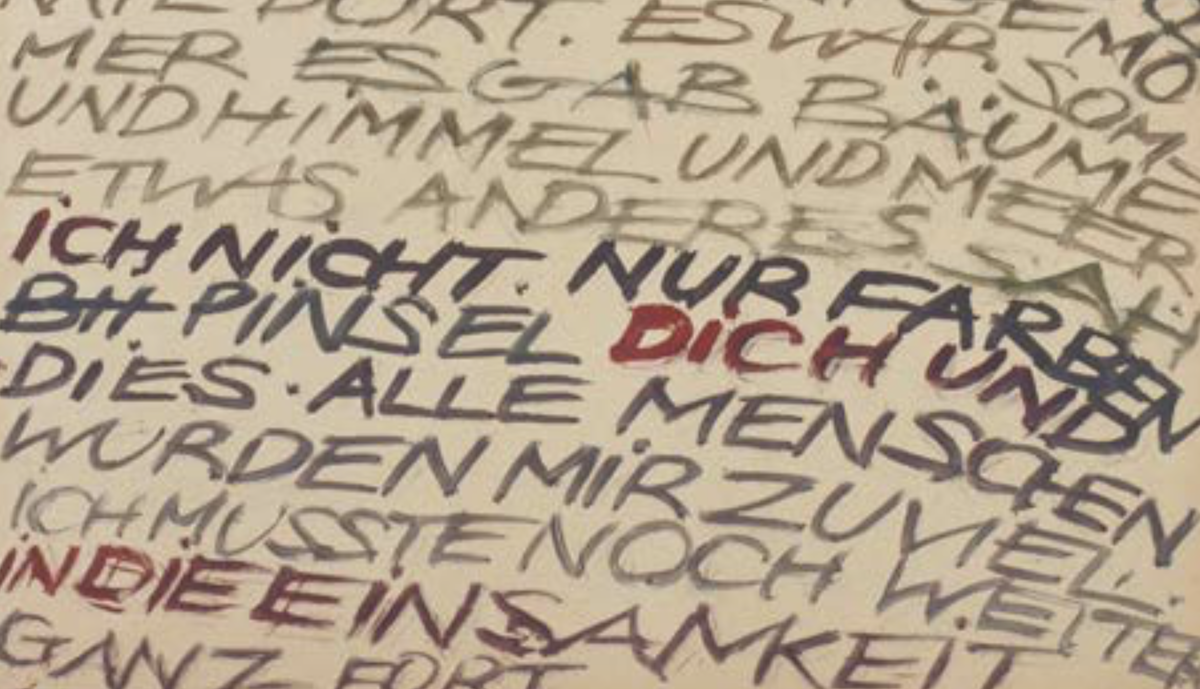 DORT. ES WAR SOM-
MER ES GAB BÄUME
UND HIMMEL UND MEER.
ETWAS ANDERES SAH
ICH NICHT. NUR FARBEN
PINSEL DICH UND
DIES. ALLE MENSCHEN
WURDEN MIR ZUVIEL.
ICH MUSSTE NOCH WEITER
IN DIE EINSAMKEIT
GANZ FORT